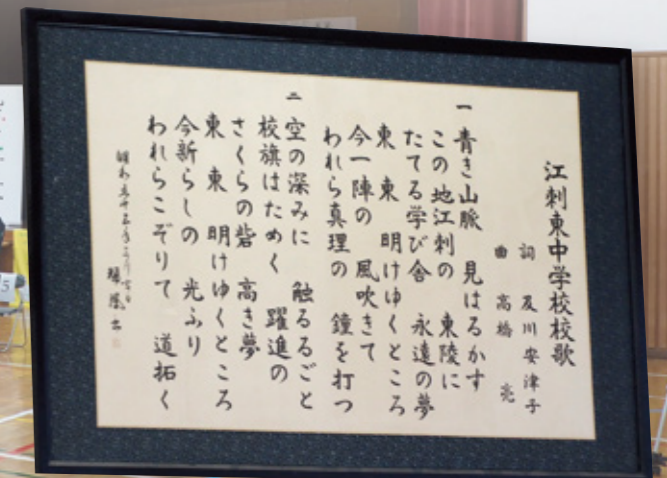 江刺東中学校校歌
詞 及川安津子
曲 高橋 亮
一 青き山脈 見はるかす
この地江刺の 東陵に
たてる学び舎 永遠の夢
東 東 明けゆくところ
今一陣の 風吹きて
われら真理の 鐘を打つ
二 空の深みに 触るるごと
校旗はためく 躍進の
さくらの砦 高き夢
東 東 明けゆくところ
今新らしの 光ふり
われらこぞりて 道拓く